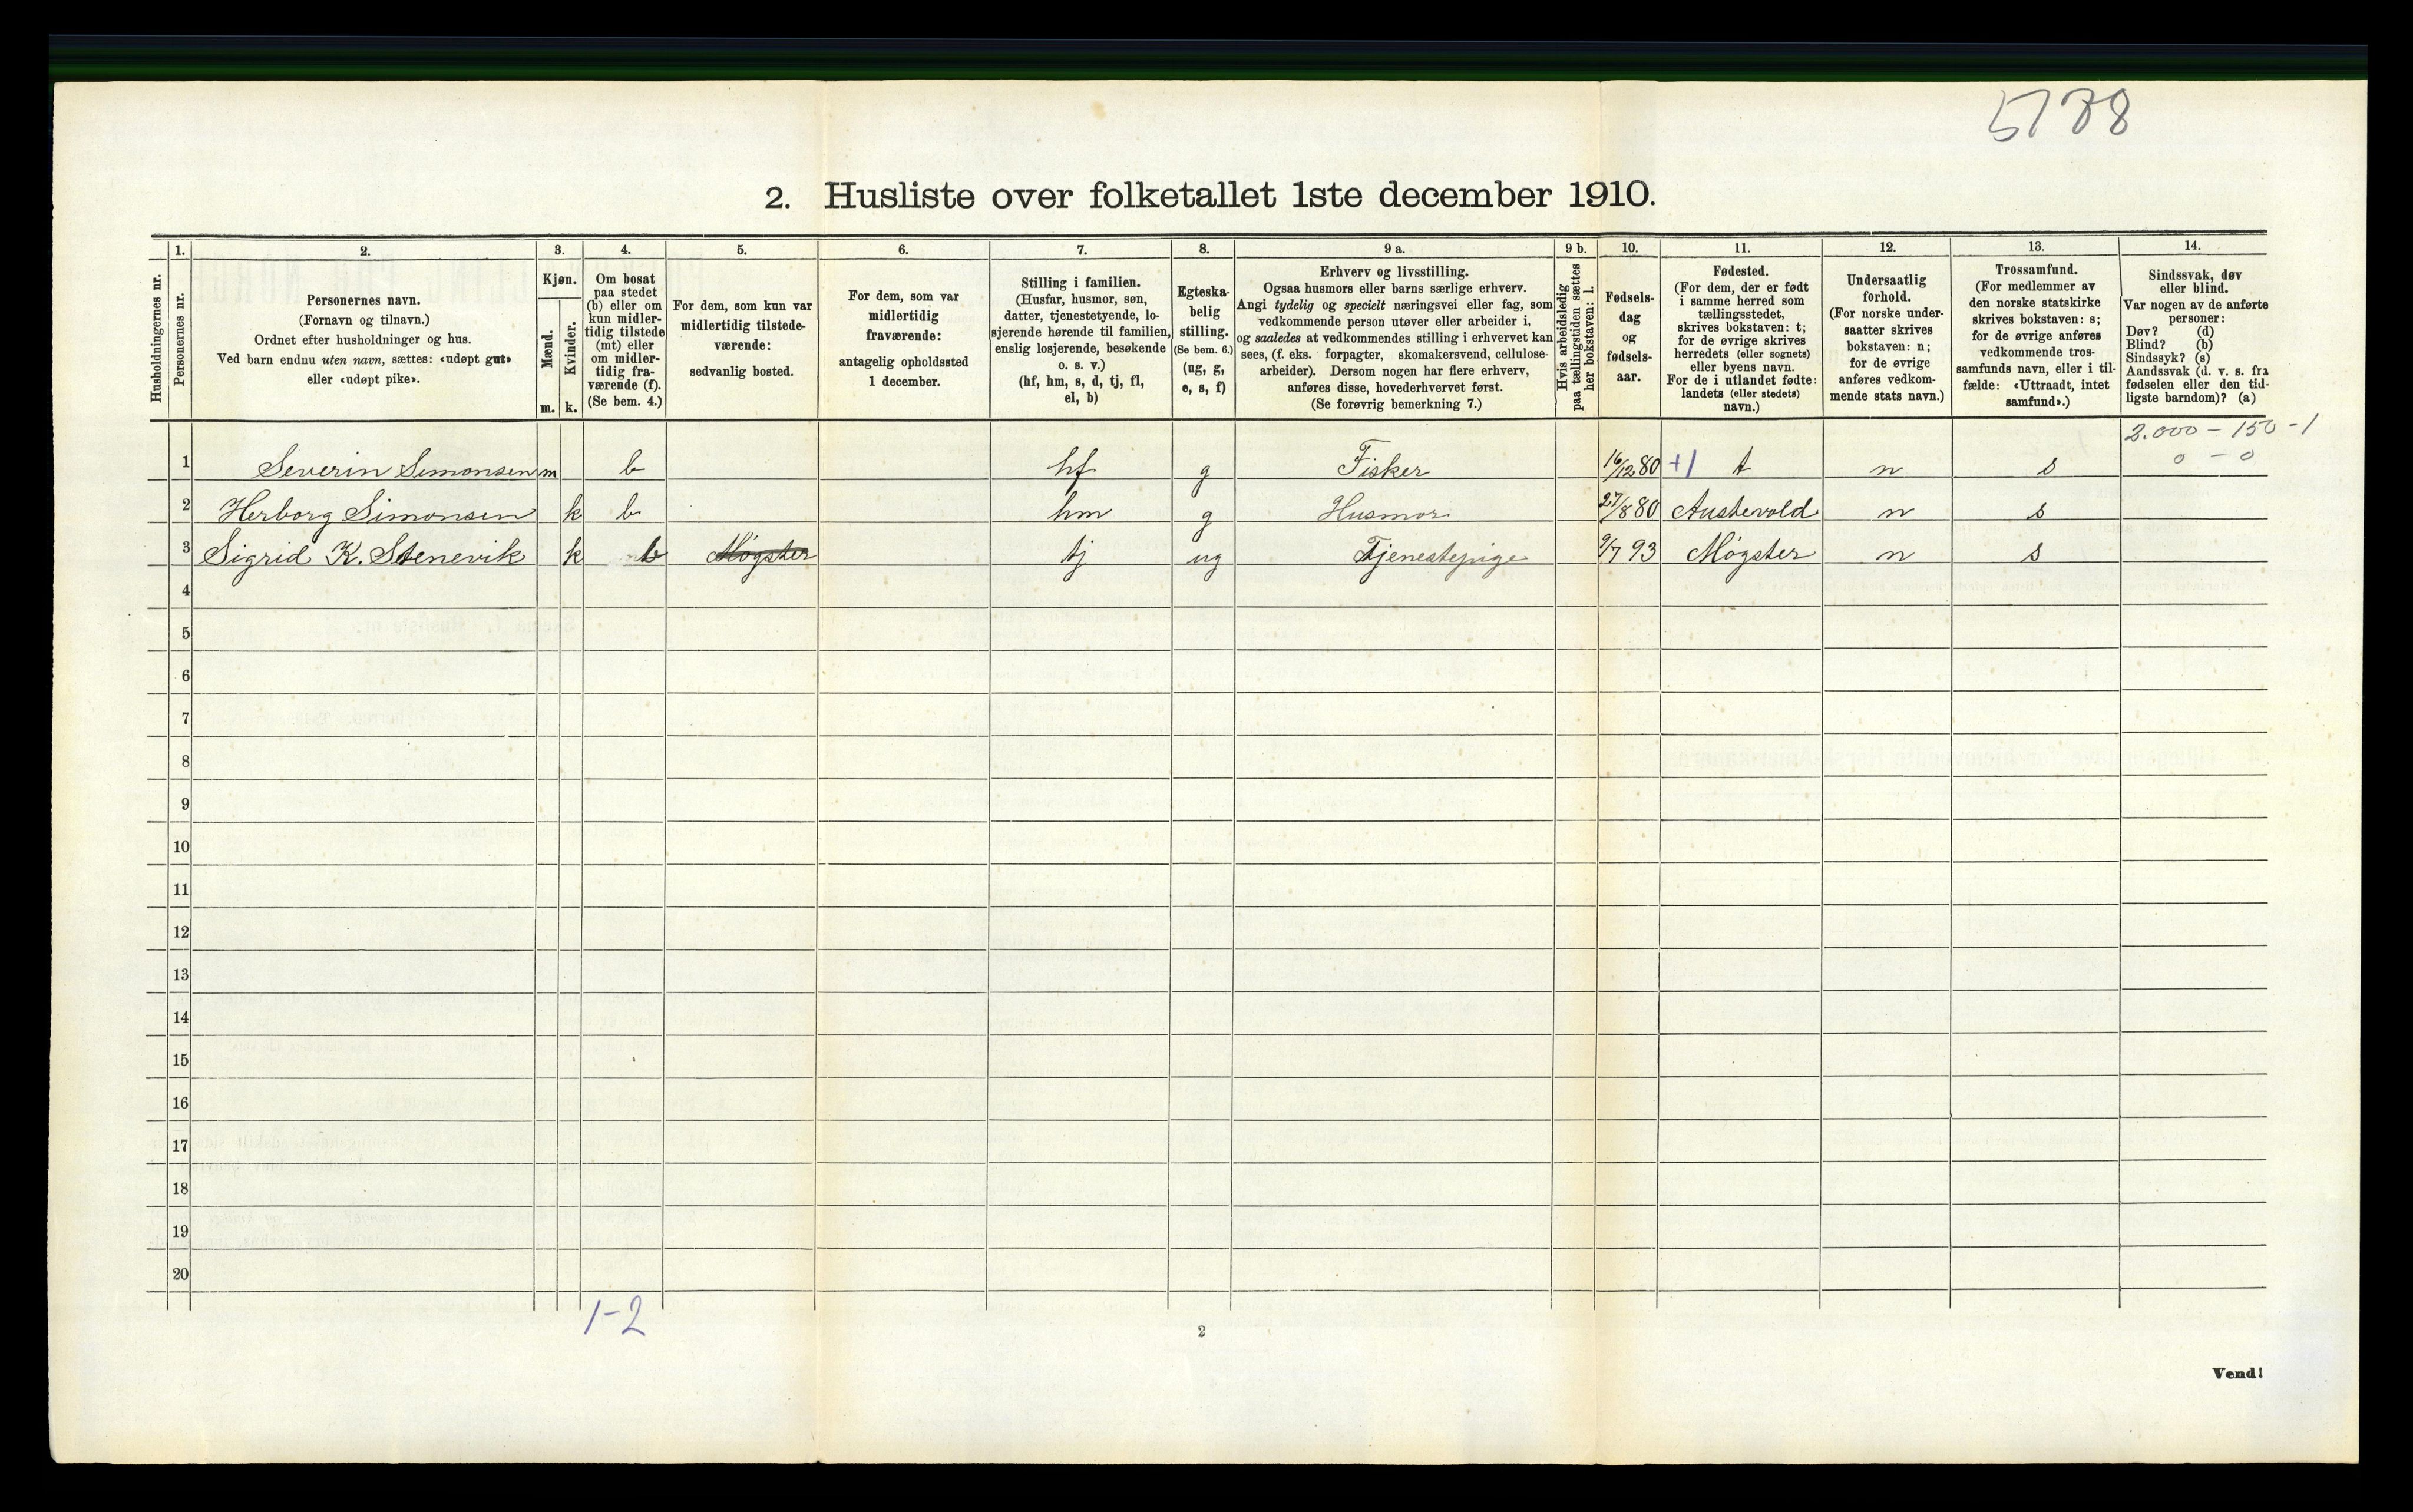 5788
2. Husliste over folketallet 1ste december 1910.
Husholdningernes nr.
1.
Personernes nr.
2.
Personernes navn.
(Fornavn og tilnavn.)
Ordnet efter husholdninger og hus.
Ved barn endnu uten navn, sættes: «udøpt gut»
eller «udøpt pike».
3.
Kjøn.
Mænd.
m.
Kvinder.
k.
4.
Om bosat
paa stedet
(b) eller om
kun midler-
tidig tilstede
(mt) eller
om midler-
tidig fra-
værende (f).
(Se bem. 4.)
5.
For dem, som kun var
midlertidig tilstede-
værende:
sedvanlig bosted.
6.
For dem, som var
midlertidig
fraværende:
antagelig opholdssted
1 december.
7.
Stilling i familien.
(Husfar, husmor, søn,
datter, tjenestetyende, lo-
sjerende hørende til familien,
enslig losjerende, besøkende
o. s. v.)
(hf, hm, s, d, tj, fl,
el, b)
8.
Egteska-
belig
stilling.
(Se bem. 6.)
(ug, g,
e, s, f)
9 a.
Erhverv og livsstilling.
Ogsaa husmors eller barns særlige erhverv.
Angi tydelig og specielt næringsvei eller fag, som
vedkommende person utøver eller arbeider i,
og saaledes at vedkommendes stilling i erhvervet kan
sees, (f. eks. forpagter, skomakersvend, cellulose-
arbeider). Dersom nogen har flere erhverv,
anføres disse, hovederhvervet først.
(Se forøvrig bemerkning 7.)
9 b.
Hvis arbeidsledig
paa tællingstiden sættes
her bokstaven: l.
10.
Fødsels-
dag
og
fødsels-
aar.
11.
Fødested.
(For dem, der er født
i samme herred som
tællingsstedet,
skrives bokstaven: t;
for de øvrige skrives
herredets (eller sognets)
eller byens navn.
For de i utlandet fødte:
landets (eller stedets)
navn.)
12.
Undersaatlig
forhold.
(For norske under-
saatter skrives
bokstaven: n;
for de øvrige
anføres vedkom-
mende stats navn.)
13.
Trossamfund.
(For medlemmer av
den norske statskirke
skrives bokstaven: s;
for de øvrige anføres
vedkommende tros-
samfunds navn, eller i til-
fælde: «Uttraadt, intet
samfund».)
14.
Sindssvak, døv
eller blind.
Var nogen av de anførte
personer:
Døv? (d)
Blind? (b)
Sindssyk? (s)
Aandssvak (d. v. s. fra
fødselen eller den tid-
ligste barndom)? (a)
2.000 - 150 - 1
0 - 0
1 Severin Simonsen m b hf g Fisker 16/12 80 +1 t n s
2 Herborg Simonsen k b hm g Husmor 27/8 80 Austevold n s
3 Sigrid K. Stenevik k b Møgster tj ug Tjenestepige 9/7 93 Møgster n s
4
5
6
7
8
9
10
11
12
13
14
15
16
17
18
19
20
1-2
2
Vend!